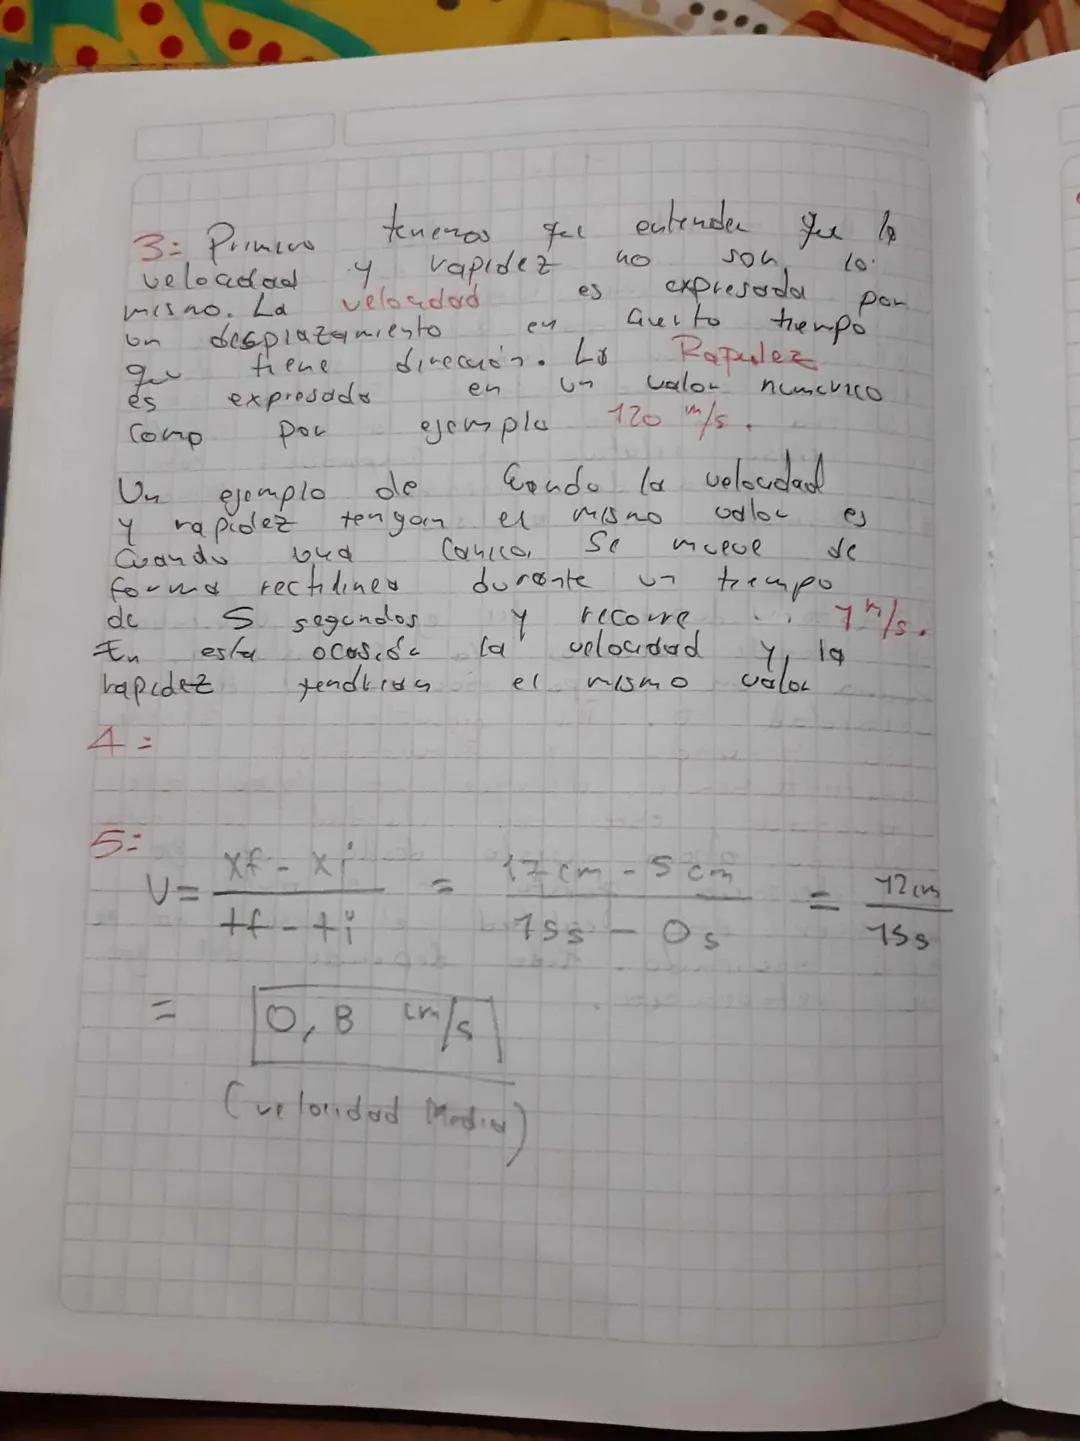 3: Primero tenemos que entender que la
velocidad y rapidez no son lo
mismo. La velocidad es expresada por
un desplazamiento en cierto tiempo
que tiene dirección. La Rapidez
es expresada en un valor numerico
como por ejemplo 120 m/s.
Un ejemplo de cuando la velocidad
y rapidez tengan el mismo valor es
cuando una canica se mueve de
forma rectilinea durante un tiempo
de 5 segundos y recorre 1 m/s.
En esta ocasión la velocidad y la
rapidez tendrian el mismo valor
4:
5:
V = xf - xi / tf - ti = 17 cm - 5 cm / 15 s - 0 s = 12 cm / 15 s
= 0,8 cm/s
(velocidad Media)